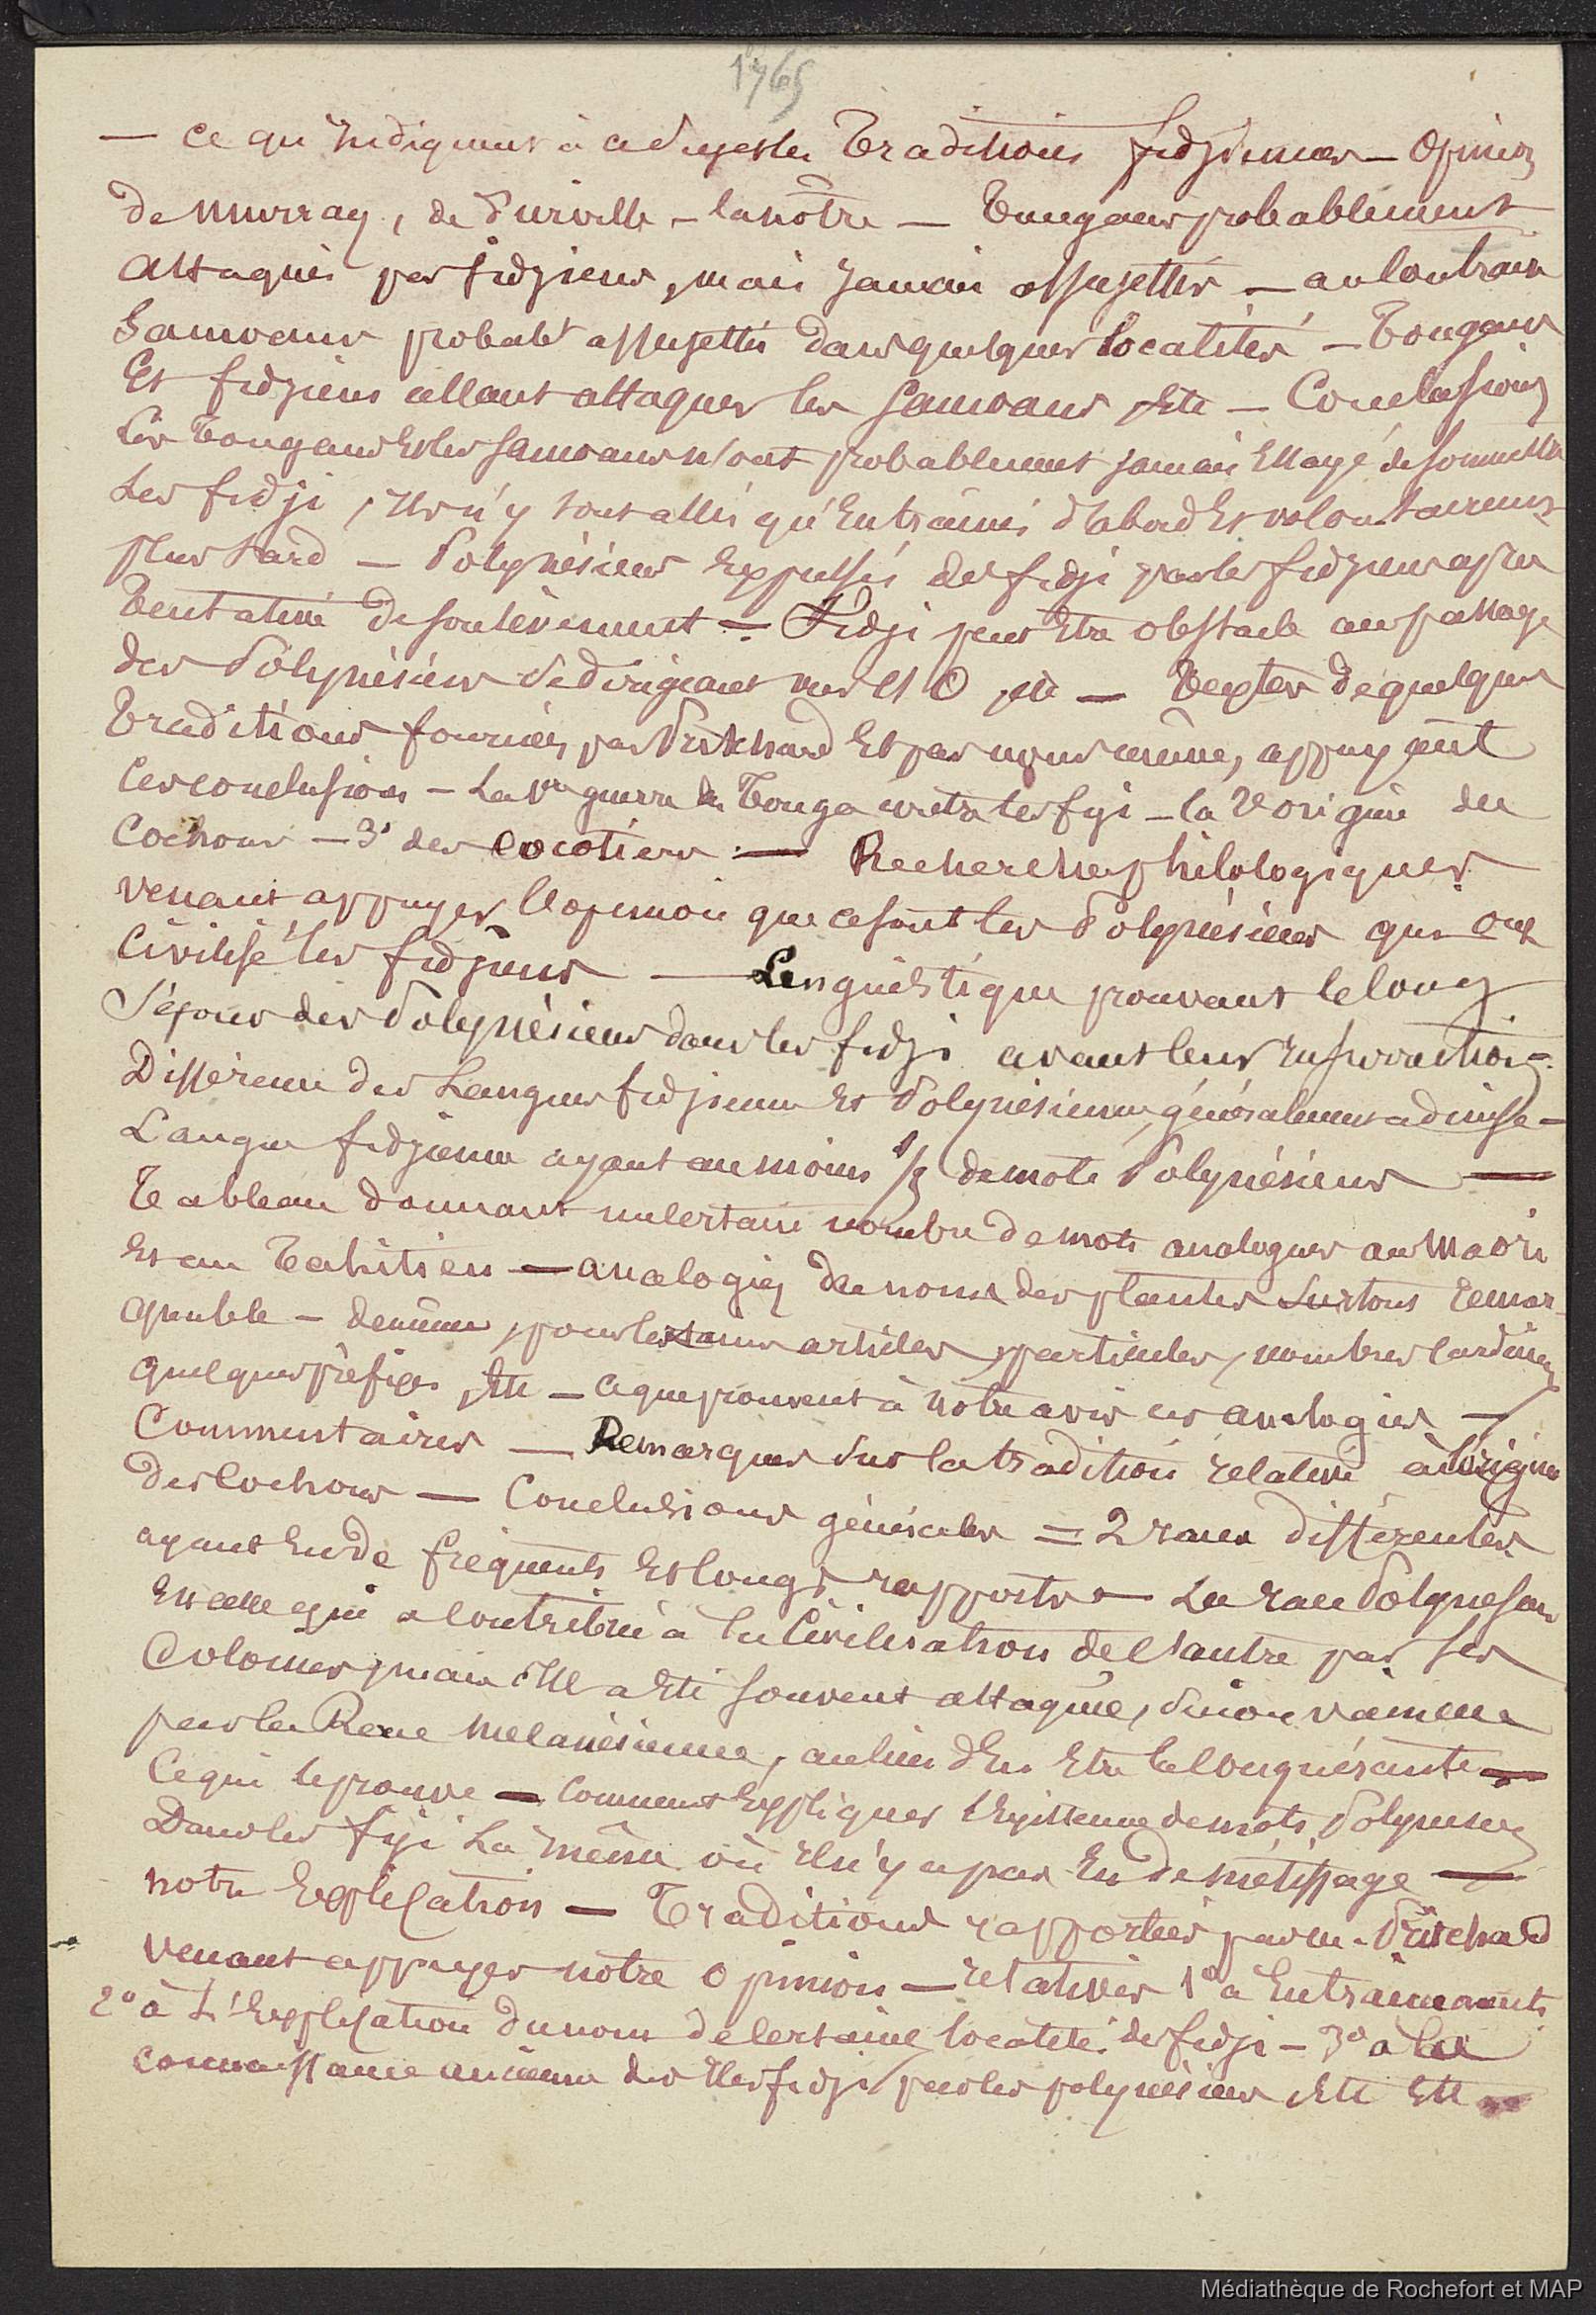 1765
— Ce qu'indiquent à ce sujet les Traditions fidjiennes — Opinion
de Murray, de d'urville — la nôtre — Tongans probablement
attaqués par fidjiens, mais jamais assujettis — au contraire
Samoans probabt assujettis dans quelques localités — Tongans
Et fidjiens allant attaquer les Samoans, Etc — Conclusions
Les Tongans et les Samoans n'ont probablement jamais Essayé de soumettre
Les fidji, Ils n'y sont allés qu'Entrainés d'abord Et volontairement
plus tard — Polynésiens Expulsés des fidji par les fidjiens après
Tentative de soulèvement — Fidji peut être obstacle au passage
des Polynésiens se dirigeant vers l'O, etc — Textes de quelques
Traditions fournies par Pritchard Et par nous même, appuyant
Ces conclusions — La 1re guerre de Tonga contre les fiji — la 2e origine des
Cochons — 3e des cocotiers — Recherches philologiques
venant appuyer l'opinion que ce sont les Polynésiens qui ont
Civilisé les fidjiens — Linguistique prouvant le long
Séjour des Polynésiens dans les fidji avant leur insurrection —
Différence des Langues fidjienne Et Polynésienne, généralement admise —
Langue fidjienne ayant au moins 1/3 de mots Polynésiens —
Tableau donnant un certain nombre de mots analogues au Maori
Et au Tahitien — analogies des noms des plantes surtout remar-
quable — de même, pour les articles, particules, nombres cardinaux
quelques préfixes, Etc — ce que prouvent à notre avis ces analogies —
Commentaires — Remarques sur la tradition relative à l'origine
des Cochons — Conclusions générales = 2 races différentes
ayant Eu de fréquents Et longs rapports — La race Polynésienne
Est celle qui a contribué à la Civilisation de l'autre par ses
Colonies, mais Elle a Eté souvent attaquée, sinon vaincue
par la Race Mélanésienne, au lieu d'En Etre la Conquérante —
Ce qui le prouve — Comment Expliquer l'Existence de mots Polynésiens
Dans les fiji Là même où Il n'y a pas Eu de métissage —
notre Explication — Traditions rapportées par m. Pritchard
venant appuyer notre opinion — relatives 1° à Entrainements
2° à L'Explication du nom de certaines localités des fidji — 3° à la
connaissance ancienne des Iles fidji par les polynésiens Etc Etc —
Médiathèque de Rochefort et MAP